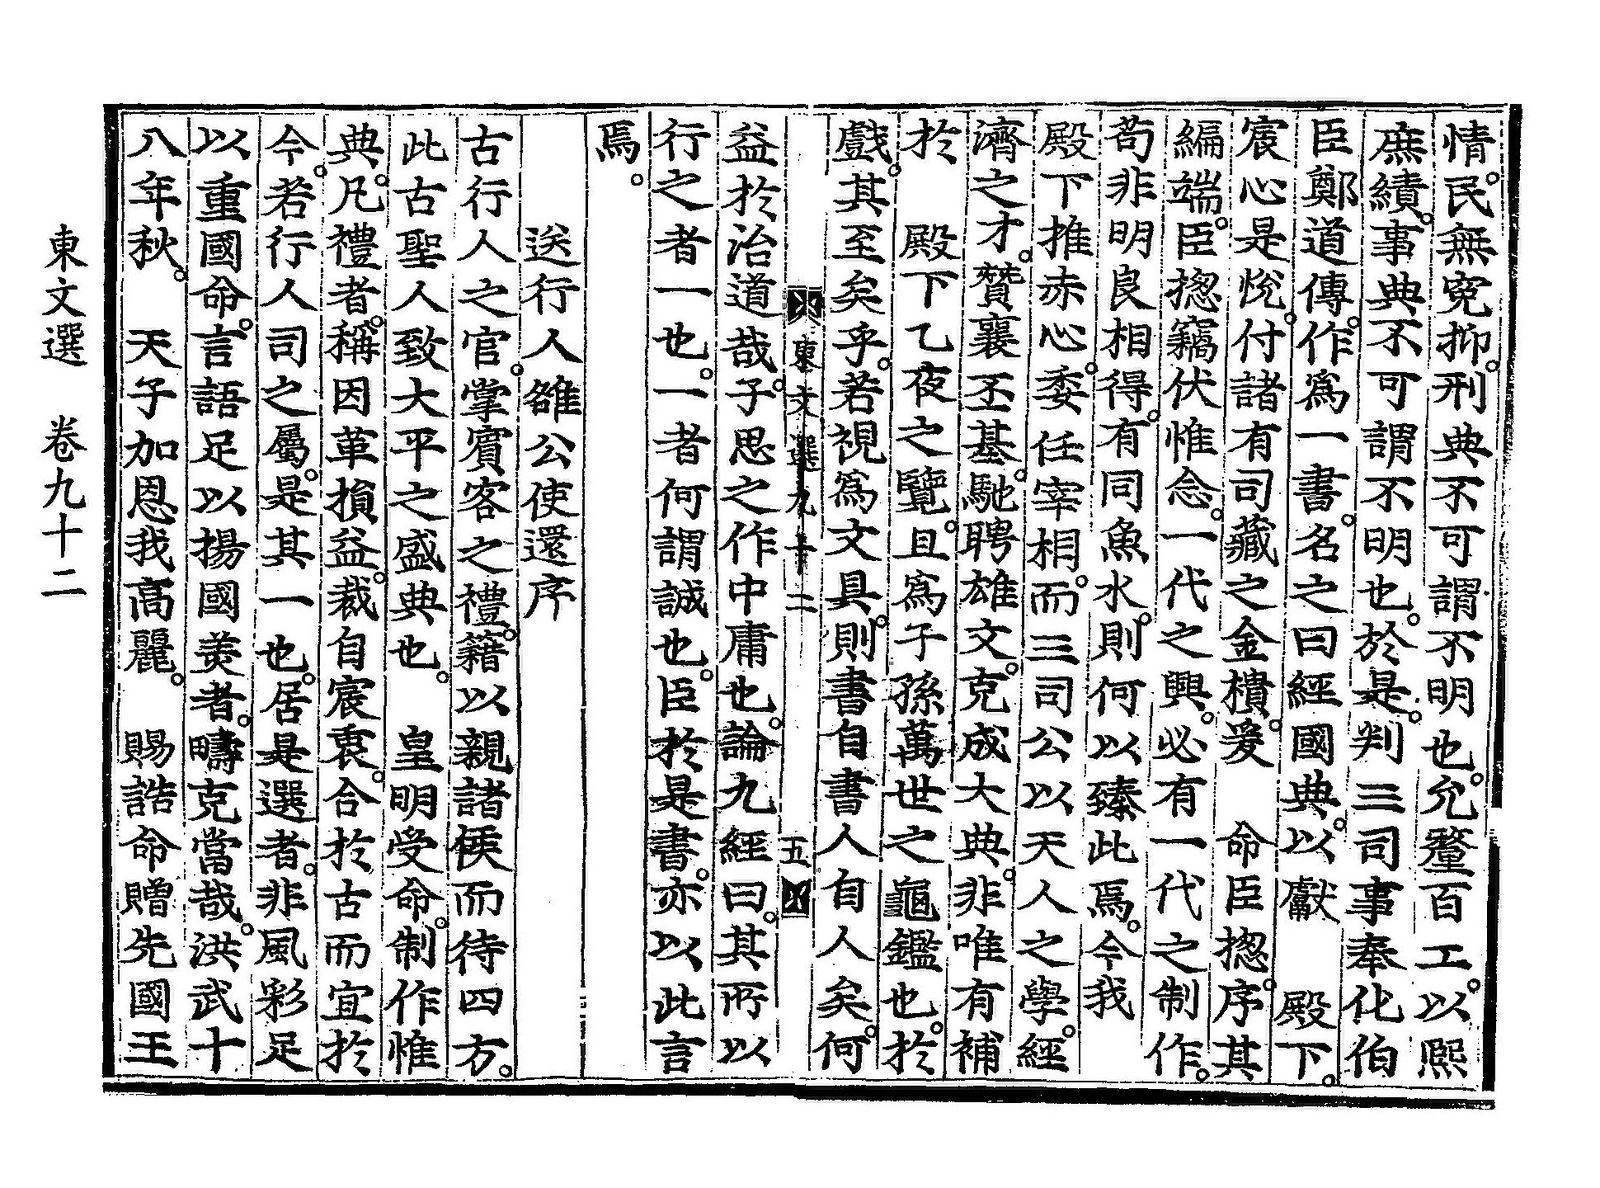 情。民無寃抑。刑典不可謂不明也。允釐百工。以熙
庶績。事典不可謂不明也。於是。判三司事奉化伯
臣鄭道傳。作爲一書。名之曰經國典。以獻　殿下。
宸心是悅。付諸有司藏之金樻。爰　命臣揔序。其
編端。臣揔竊伏惟念。一代之興。必有一代之制作。
苟非明良相得。有同魚水。則何以臻此焉。今我
殿下推赤心。委任宰相。而三司公以天人之學。經
濟之才。贊襄丕基。馳騁雄文。克成大典。非唯有補
於　殿下乙夜之覽。且爲子孫萬世之龜鑑也。於
戲。其至矣乎。若視爲文具。則書自書人自人矣。何
東文選九十二　五
益於治道哉。子思之作中庸也。論九經曰。其所以
行之者一也。一者何謂誠也。臣於是書。亦以此言
焉。
送行人雒公使還序
古行人之官。掌賓客之禮。籍以親諸侯而待四方。
此古聖人致大平之盛典也。　皇明受命。制作惟
典。凡禮者。稱因革損益。裁自宸衷。合於古而宜於
今。若行人司之屬。是其一也。居是選者。非風彩足
以重國命。言語足以揚國美者。疇克當哉。洪武十
八年秋。　天子加恩我高麗。　賜誥命贈先國王
東文選　卷九十二